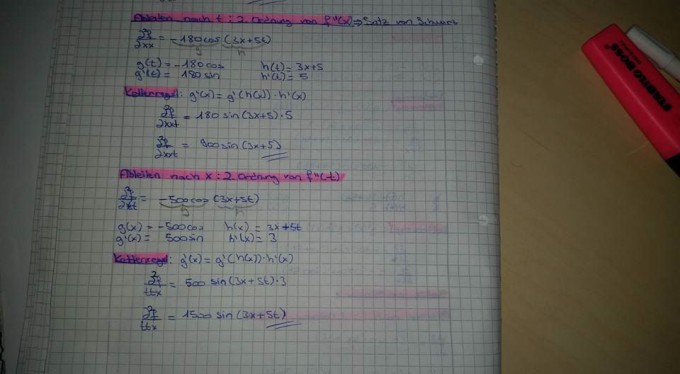 Ableiten nach t: 2. Ordnung von f''(x) ⇒ Satz von Schwarz
= -180cos (3x+5t)
g h
g(t) = -180cos h(t) = 3x+5
g'(t) = 180 sin h'(t) = 5
Kettenregel: g'(x) = g'(h(x)) · h'(x)
= 180 sin (3x+5) · 5
= 900 sin (3x+5)
Ableiten nach x: 2. Ordnung von f''(t)
= -500cos (3x+5t)
g h
g(x) = -500cos h(x) = 3x+5t
g'(x) = 500sin h'(x) = 3
Kettenregel: g'(x) = g'(h(x)) · h'(x)
= 500 sin (3x+5t) · 3
= 1500 sin (3x+5t)
STABILO BOSS